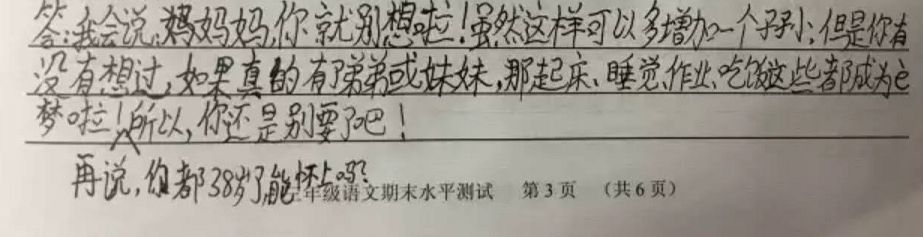 答:我会说:妈妈妈,你就别想啦!虽然这样可以多增加一个孩子,但是你有
没有想过,如果真的有了弟弟或妹妹,那起床、睡觉、作业、吃饭这些都成为
梦啦!所以,你还是别要了吧!
再说,你都38岁了,能怀上吗?
年级语文期末水平测试 第3页 (共6页)